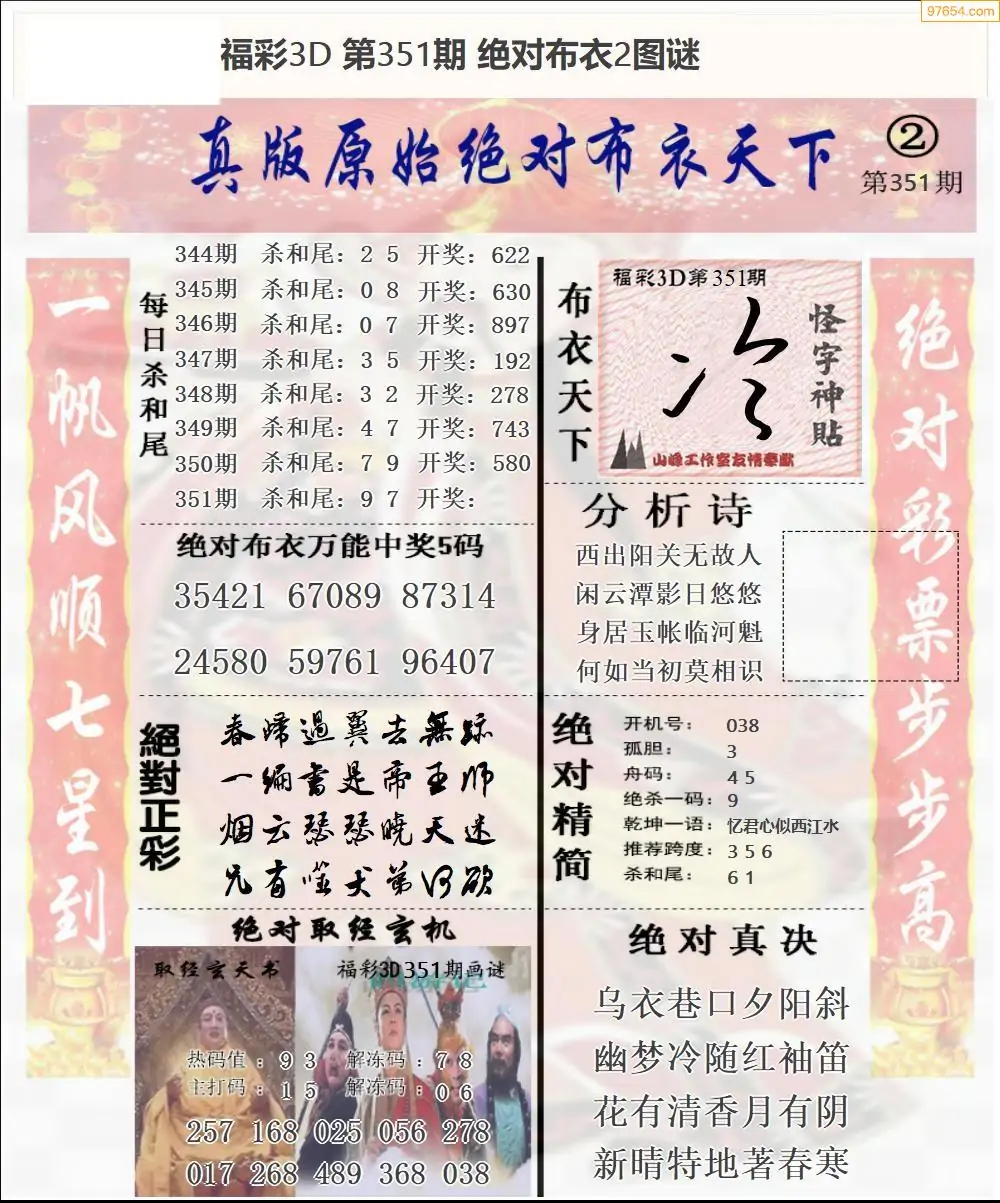 97654.com
福彩3D 第351期 绝对布衣2图谜
真版原始绝对布衣天下
②
第351期
一帆风顺七星到
每日杀和尾
344期 杀和尾：2 5 开奖：622
345期 杀和尾：0 8 开奖：630
346期 杀和尾：0 7 开奖：897
347期 杀和尾：3 5 开奖：192
348期 杀和尾：3 2 开奖：278
349期 杀和尾：4 7 开奖：743
350期 杀和尾：7 9 开奖：580
351期 杀和尾：9 7 开奖：
绝对布衣万能中奖5码
35421 67089 87314
24580 59761 96407
絕對正彩
一编书是帝王师
烟云瑟瑟晓天迷
绝对取经玄机
取经玄天书
福彩3D351期画谜
热码值：9 3 解冻码：7 8
主打码：1 5 解冻码：0 6
257 168 025 056 278
017 268 489 368 038
布衣天下
福彩3D第351期
冷
怪字神貼
山峰工作室友情奉献
分析诗
西出阳关无故人
闲云潭影日悠悠
身居玉帐临河魁
何如当初莫相识
绝对精简
开机号：038
孤胆：3
舟码：4 5
绝杀一码：9
乾坤一语：忆君心似西江水
推荐跨度：3 5 6
杀和尾：6 1
绝对真决
乌衣巷口夕阳斜
幽梦冷随红袖笛
花有清香月有阴
新晴特地著春寒
绝对彩票步步高